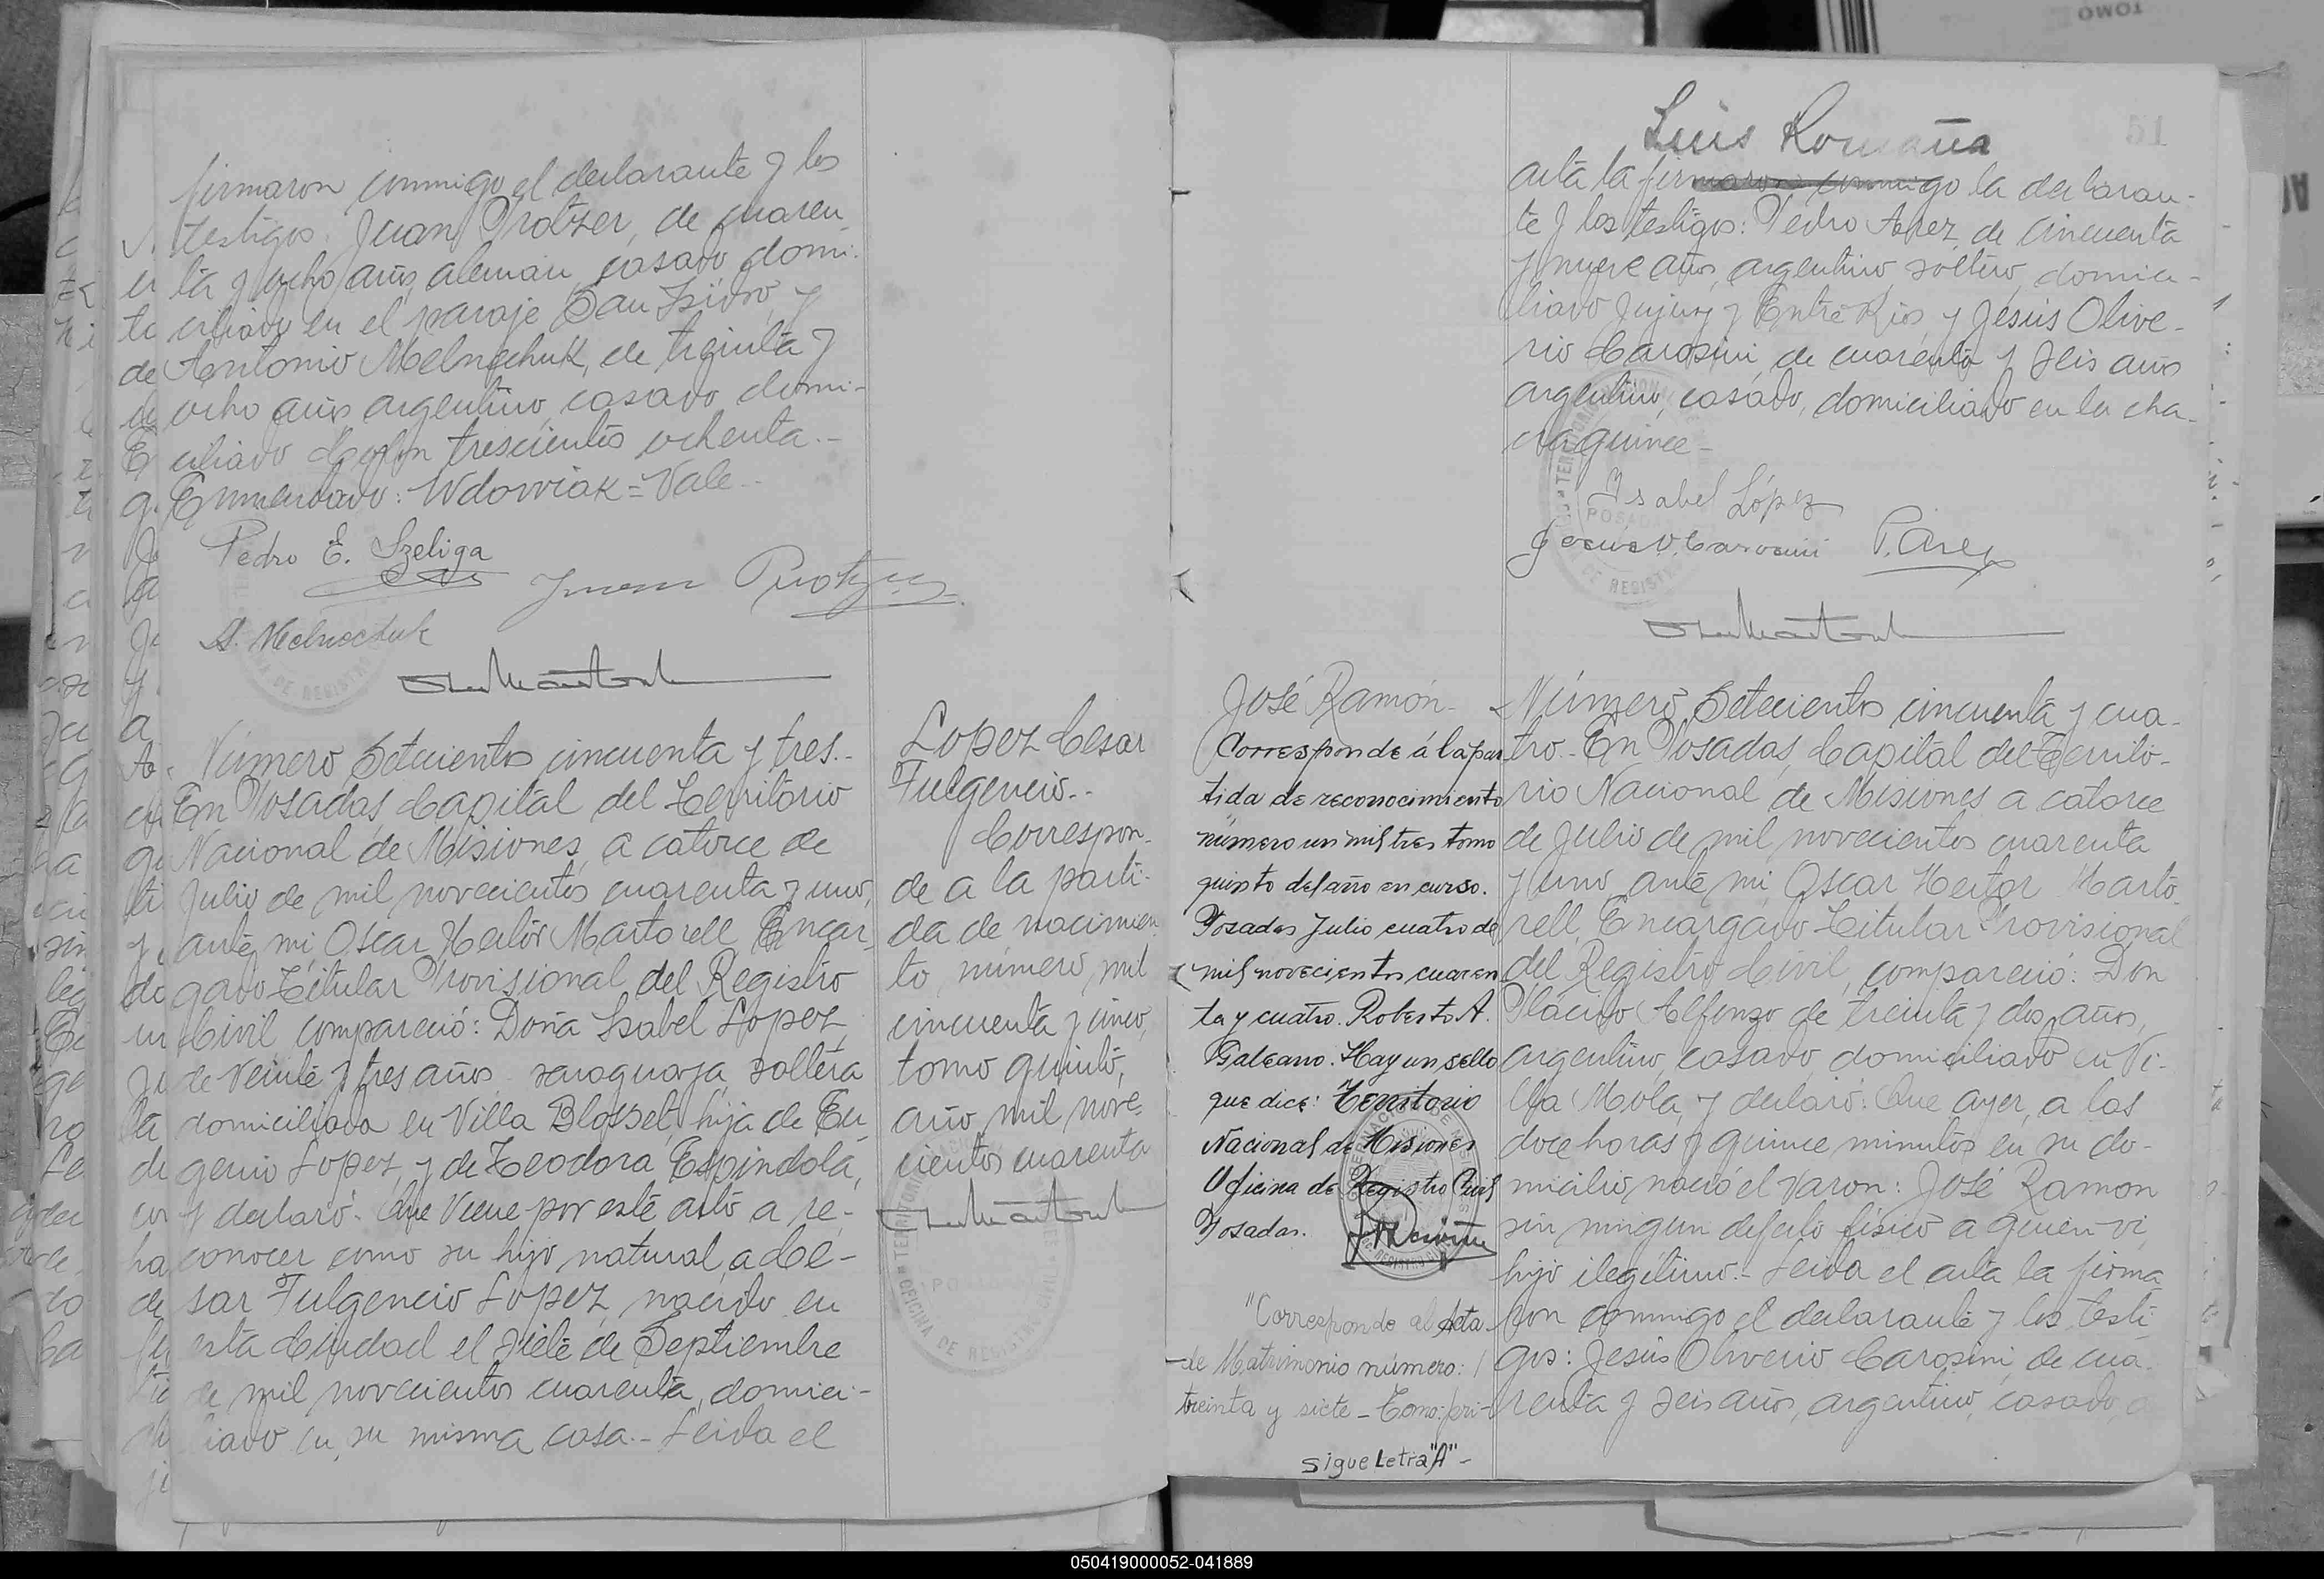 firmaron conmigo el declarante y los
testigos: Juan Protzer, de cuaren
ta y ocho años, aleman, casado, domi-
ciliado en el paraje San Isidro, y
de Antonio Melnechuk, de treinta y
ocho años, argentino, casado, domi-
ciliado Colon trescientos ochenta.-
Enmendado: Wdowiak = Vale.-
Pedro E. Szeliga
Juan Protzer
A. Melneczuk
Número Setecientos cincuenta y tres.-
En Posadas, Capital del Territorio
Nacional de Misiones, a catorce de
Julio de mil novecientos cuarenta y uno,
ante mi, Oscar Hector Martorell Encar
gado Titular Provisional del Registro
Civil, compareció: Doña Isabel Lopez,
de veinte y tres años, paraguaya, soltera
domiciliada en Villa Blosset, hija de Eu
genio Lopez, y de Teodora Espindola,
y declaró: Que viene por este acto a re-
conocer como su hijo natural, a Cé-
sar Fulgencio Lopez, nacido en
esta Ciudad el siete de Septiembre
de mil novecientos cuarenta, domici-
liado en su misma casa.- Leida el
Lopez Cesar
Fulgencio.-
Correspon-
de a la parti-
da de nacimien
to, número, mil
cincuenta y cinco,
tomo quinto,
año mil nove-
cientos cuarenta
51
Luis Romaña
acta la firmaron conmigo la declaran-
te y los testigos: Pedro Arez, de cincuenta
y nueve años, argentino, soltero, domici-
liado Jujuy y Entre Rios, y Jesús Olive-
rio Carosini, de cuarenta y seis años
argentino, casado, domiciliado en la cha-
cra quince-
Isabel López
P. Arez
José Ramón-
Corresponde á la par
tida de reconocimiento
número un mil tres tomo
quinto del año en curso.
Posadas Julio cuatro de
mil novecientos cuaren
ta y cuatro. Roberto A.
Galeano. Hay un sello
que dice: Territorio
Nacional de Misiones
Oficina de Registro Civil
Posadas.
"Corresponde al Acta
de Matrimonio número:
treinta y siete - Tomo: pri-
sigue Letra "A"-
Número Setecientos cincuenta y cua-
tro.- En Posadas, Capital del Territo-
rio Nacional de Misiones a catorce
de Julio de mil novecientos cuarenta
y uno, ante mi, Oscar Hector Marto
rell, Encargado Titular Provisional
del Registro Civil, compareció: Don
Plácido Alfonzo de treinta y dos años,
argentino, casado, domiciliado en Vi-
lla Mola, y declaró: Que ayer, a las
doce horas y quince minutos en su do-
micilio, nació el varon: José Ramon
sin ningun defecto físico a quien vi,
hijo ilegítimo.- Leida el acta la firma
ron conmigo el declarante y los testi
gos: Jesús Oliverio Carosini, de cua-
renta y seis años, argentino, casado,
050419000052-041889